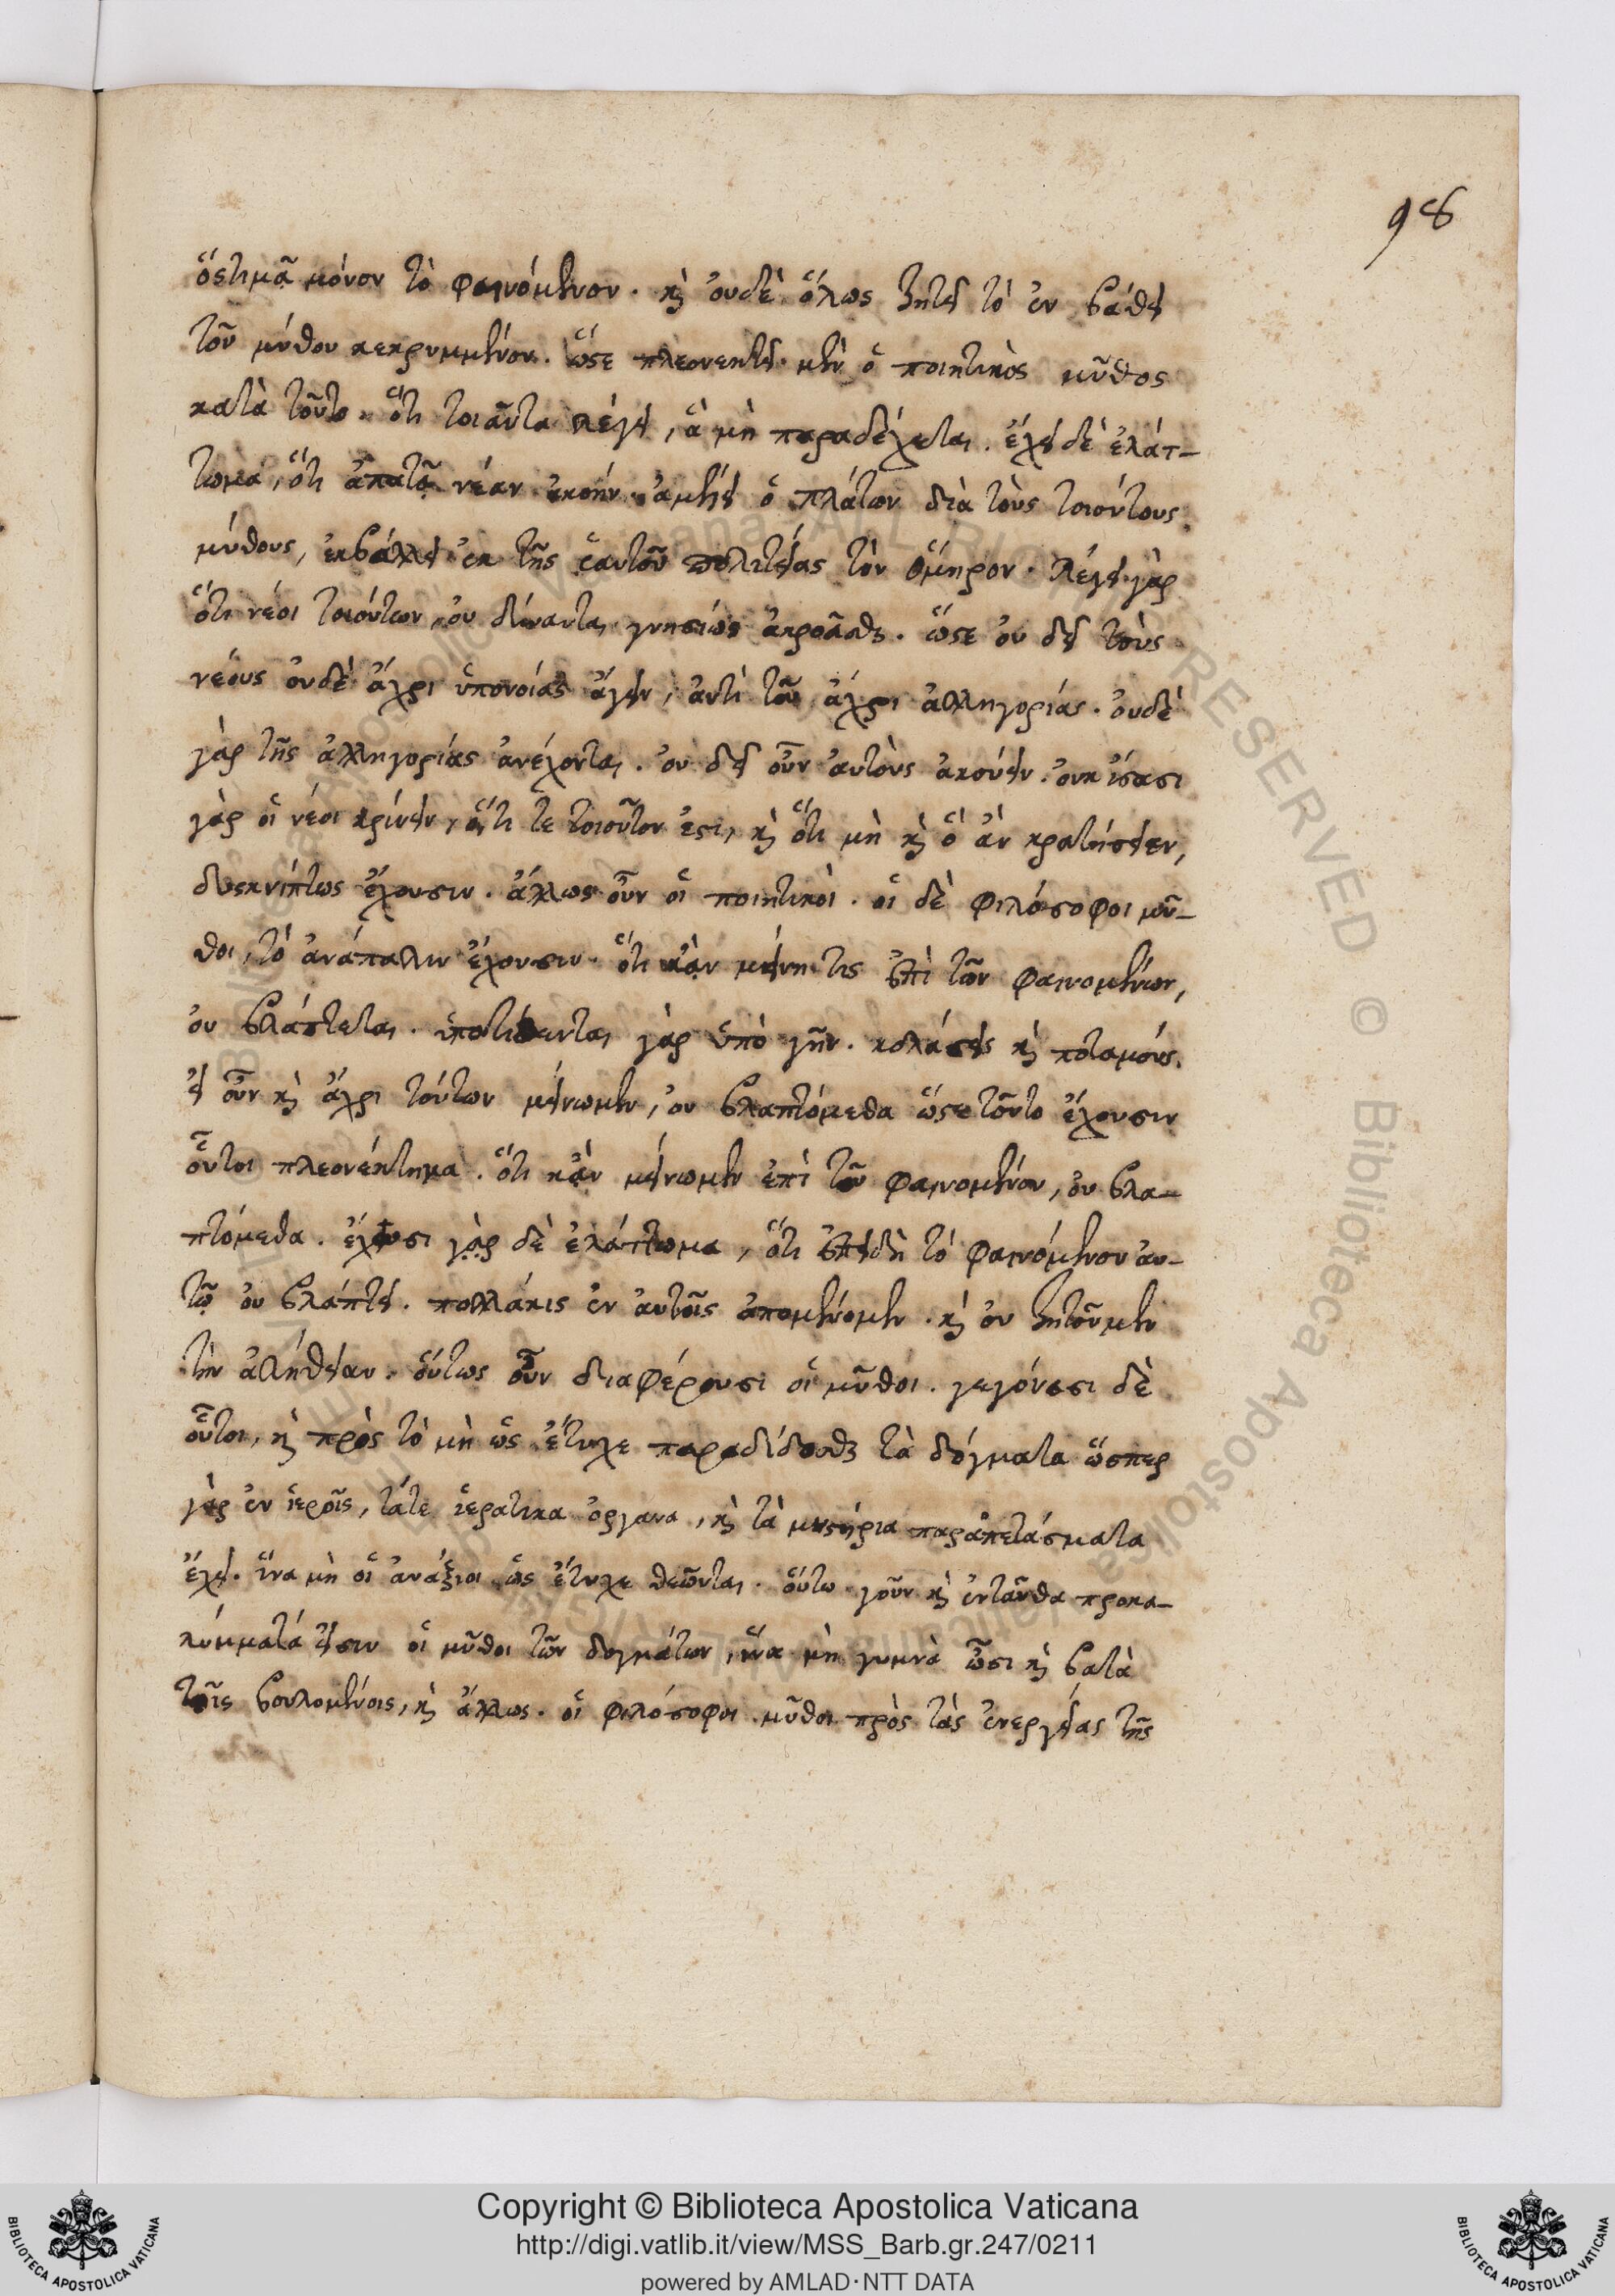 98
ὅς τιμᾷ μόνον τὸ φαινόμενον. καὶ οὐδὲ ὅλως ζητεῖ τὸ ἐν βάθει
τοῦ μύθου κεκρυμμένον. ὥστε πλεονεκτεῖ. μὲν ὁ ποιητικὸς μῦθος
κατὰ τοῦτο. ὅτι τοιαῦτα λέγει, ἃ μὴ παραδέχεται. ἔχει δὲ ἐλάτ-
τωμα, ὅτι ἀπατᾷ νέαν ἀκοήν. ἀμέλει ὁ πλάτων διὰ τοὺς τοιούτους
μύθους, ἐκβάλλει ἐκ τῆς ἑαυτοῦ πολιτείας τὸν ὅμηρον. λέγει γὰρ
ὅτι νέοι τοιούτων, οὐ δύνανται γνησίως ἀκροᾶσθαι. ὥστε οὐ δεῖ τοὺς
νέους οὐδὲ ἄχρι ὑπονοίας ἄγειν, ἀντὶ τοῦ ἄχρι ἀλληγορίας. οὐδὲ
γὰρ τῆς ἀλληγορίας ἀνέχονται. οὐ δεῖ οὖν αὐτοὺς ἀκούειν. οὐκ ἴσασι
γὰρ οἱ νέοι κρίνειν, ὅτι τε τοιοῦτον ἐστι, καὶ ὅτι μὴ καὶ ὃ ἂν κρατήσειεν,
δυσκνίπτως ἔχουσιν. ἄλλως οὖν οἱ ποιητικοὶ. οἱ δὲ φιλόσοφοι μῦ-
θοι, τὸ ἀνάπαλιν ἔχουσιν. ὅτι κἂν μείνῃ τις ἐπὶ τῶν φαινομένων,
οὐ βλάπτεται. ὑποτίθενται γὰρ ὑπὸ γῆν. κολάσεις καὶ ποταμούς.
εἰ οὖν καὶ ἄχρι τούτων μείνωμεν, οὐ βλαπτόμεθα ὥστε τοῦτο ἔχουσιν
οὗτοι πλεονέκτημα. ὅτι κἂν μείνωμεν ἐπὶ τοῦ φαινομένου, οὐ βλα-
πτόμεθα. ἔχουσι γὰρ δὲ ἐλάττωμα, ὅτι ἐπειδὴ τὸ φαινόμενον αὐ-
τῷ οὐ βλάπτει. πολλάκις ἐν αὐτοῖς ἀπομένομεν. καὶ οὐ ζητοῦμεν
τὴν ἀλήθειαν. οὕτως οὖν διαφέρουσι οἱ μῦθοι. γεγόνασι δὲ
οὗτοι, καὶ πρὸς τὸ μὴ ὡς ἔτυχε παραδίδοσθαι τὰ δόγματα ὥσπερ
γὰρ ἐν ἱεροῖς, τάτε ἱερατικα ὄργανα, καὶ τὰ μυστήρια παραπετάσματα
ἔχει. ἵνα μὴ οἱ ἀνάξιοι ὡς ἔτυχε θεῶνται. οὕτω γοῦν καὶ ἐνταῦθα προκα-
λύμματά εἰσιν οἱ μῦθοι τῶν δογμάτων, ἵνα μὴ γυμνὰ ὦσι καὶ βατὰ
τοῖς βουλομένοις, καὶ ἄλλως. οἱ φιλόσοφοι μῦθοι πρὸς τὰς ἐνεργείας τῆς
Copyright © Biblioteca Apostolica Vaticana
http://digi.vatlib.it/view/MSS_Barb.gr.247/0211
powered by AMLAD·NTT DATA